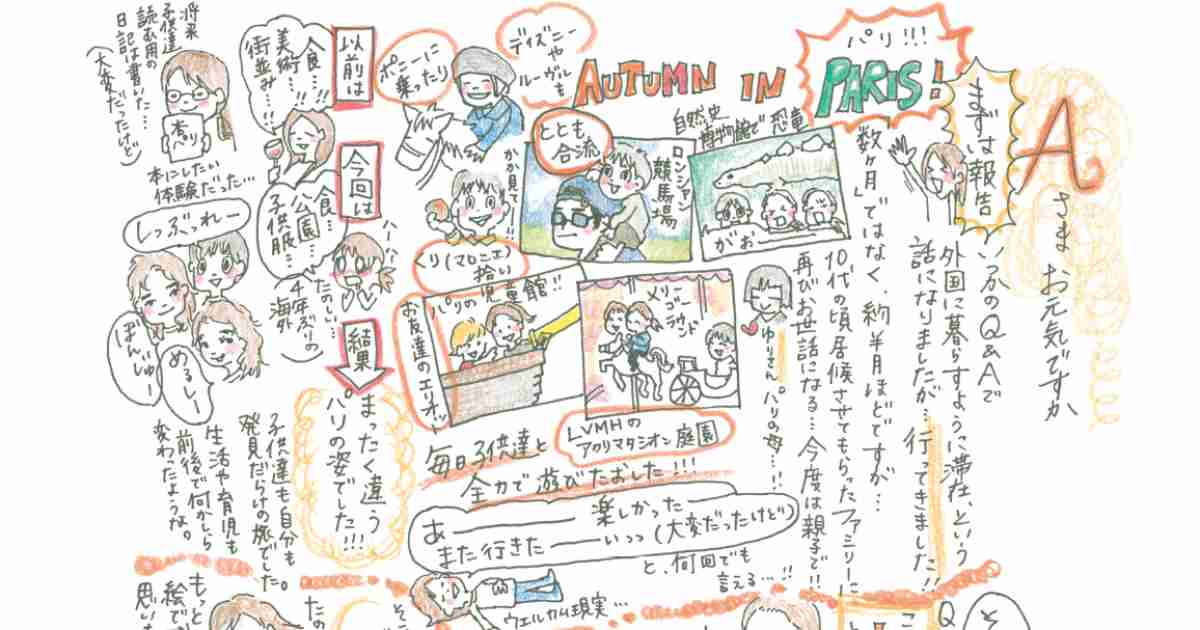 Aさま お元気ですか
まずは報告
いつかのQ&Aで
外国に暮らすように滞在、という
話になりましたが…行ってきました!!
パリ!!!
AUTUMN IN PARIS!
「数ヶ月」ではなく、約半月ほどですが…
10代の頃居候させてもらったファミリーに
再びお世話になる…今度は親子で!!
ゆりさん パリの母…!!
自然史
博物館で恐竜
がおー
ロンシャン
競馬場
ととも
合流
メリー
ゴー
ラウンド
LVMHの
アクリマタシオン庭園
ディズニーや
ルーヴルも
ポニーに
乗ったり
かか見てー!!
くり(マロニエ)
拾い
パリの児童館!!
お友達のエリオット
毎日子供達と
全力で遊びたおした!!!
あー 楽しかったー(大変だったけど)
また行きたーいっっ
と、何回でも
言える…!!
ウェルカム現実…
以前は
食…!!
美術…!!
街並み…!!
今回は
食…
公園…
子供服…
ハーハー
たのしい…
(4年ぶりの
海外)
結果
まったく違う
パリの姿でした!!!
子供達も自分も
発見だらけの旅でした。
生活や育児も
前後で何かしら
変わったような。
将来
子供達
読む用の
日記は書いた…
(大変だったけど)
本にしたい
体験だった…
しっぷれー
ぼんじゅー
めるしー
もっと
絵で
思い